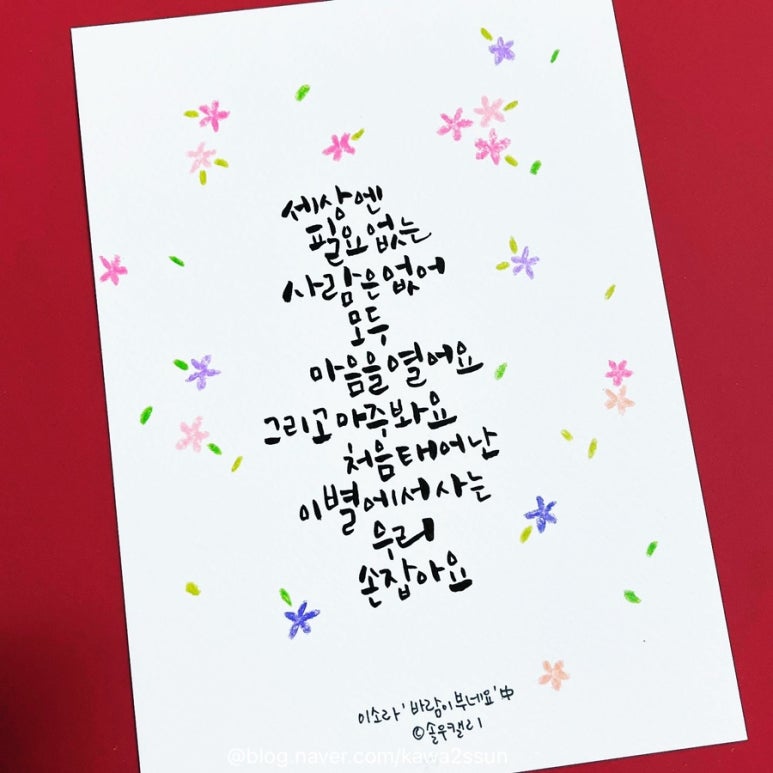 세상엔
필요없는
사람은없어
모두
마음을열어요
그리고마주봐요
처음태어난
이별에서사는
우리
손잡아요
이소라 '바람이부네요' 中
©솔우캘리
@blog.naver.com/kawa2ssun